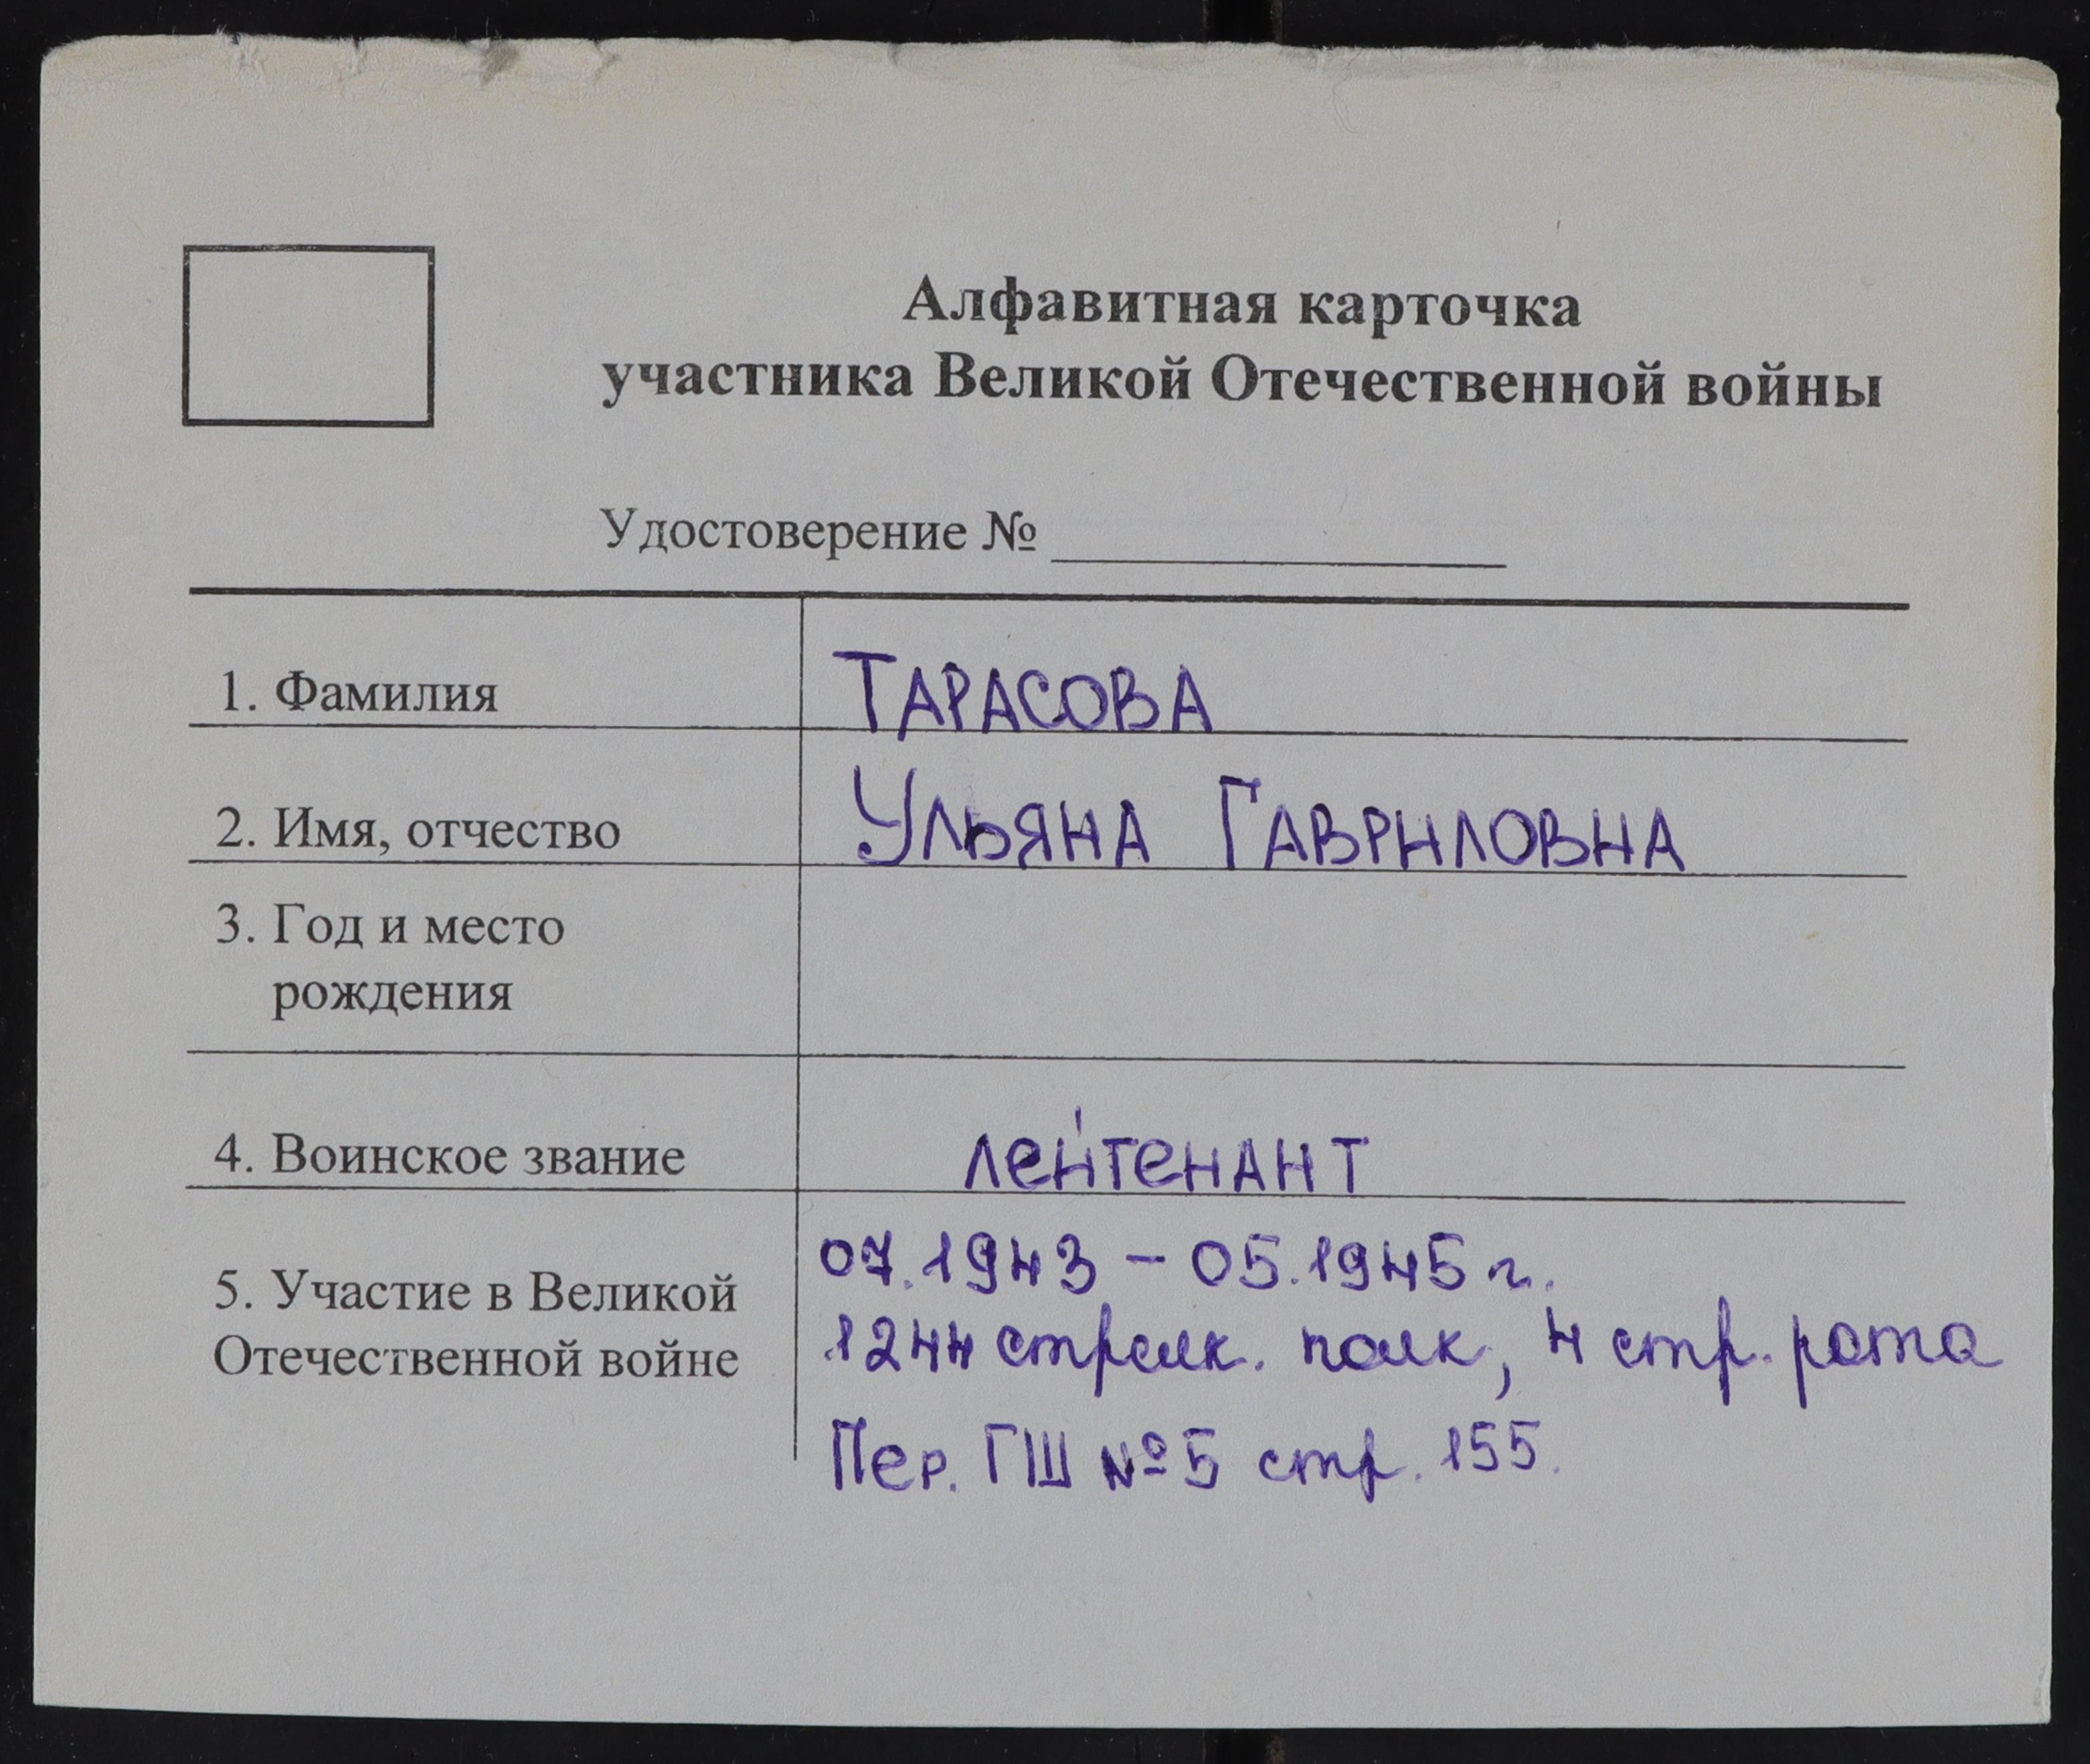 Алфавитная карточка
участника Великой Отечественной войны
Удостоверение №
1. Фамилия ТАРАСОВА
2. Имя, отчество УЛЬЯНА ГАВРИЛОВНА
3. Год и место
рождения
4. Воинское звание лейтенант
5. Участие в Великой
Отечественной войне
07.1943 – 05.1945 г.
1244 стрелк. полк, 4 стр. рота
Пер. ГШ №5 стр. 155.